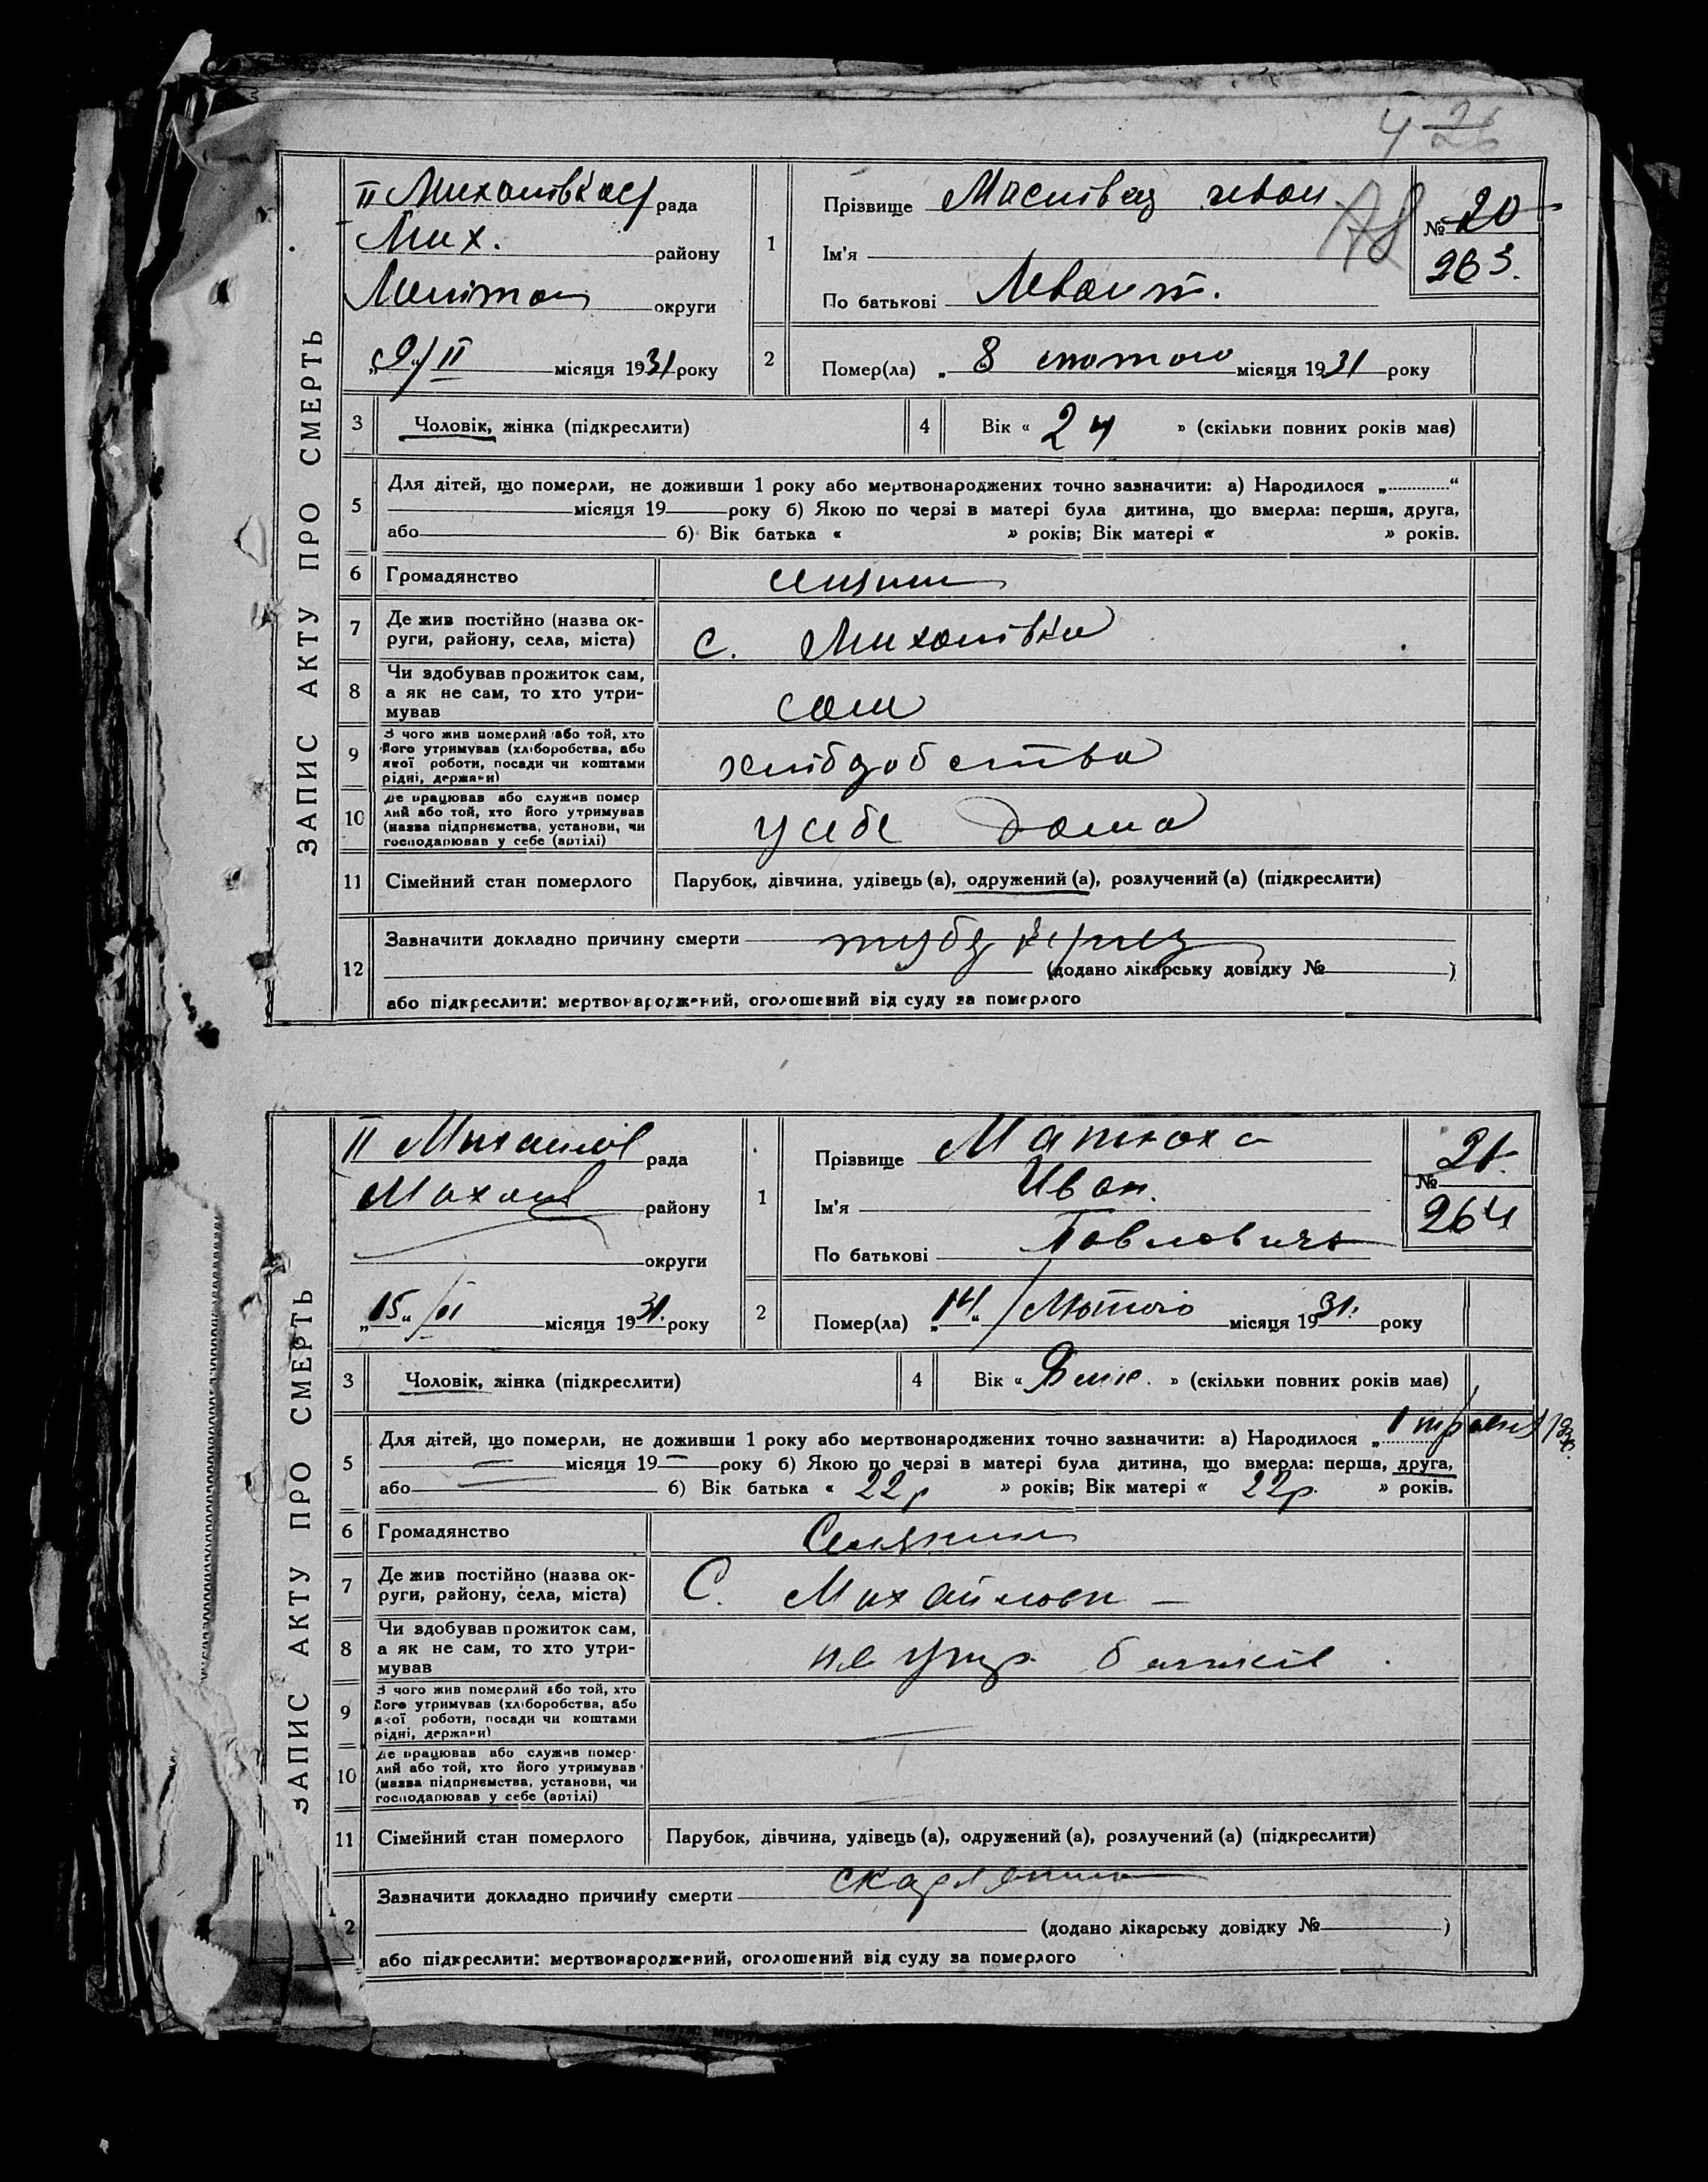 4 21
26
ЗАПИС АКТУ ПРО СМЕРТЬ
ІІ рада
Мих. району
округи
„9“/ІІ місяця 1931 року
1
Прізвище
Ім'я
По батькові
№ 20
263.
2
Помер(ла) „ 8 лютого місяця 1931 року
3
Чоловік, жінка (підкреслити)
4
Вік « 24 » (скільки повних років має)
5
Для дітей, що померли, не доживши 1 року або мертвонароджених точно зазначити: а) Народилося „ “
місяця 19 року б) Якою по черзі в матері була дитина, що вмерла: перша, друга,
або б) Вік батька « » років; Вік матері « » років.
6
Громадянство
7
Де жив постійно (назва ок-
руги, району, села, міста)
с. Михайлівка
8
Чи здобував прожиток сам,
а як не сам, то хто утри-
мував
сам
9
З чого жив померлий або той, хто
його утримував (хліборобства, або
якої роботи, посади чи коштами
рідні, держави)
10
Де працював або служив помер
лий або той, хто його утримував
(назва підприємства, установи, чи
господарював у себе (артілі)
у себе дома
11
Сімейний стан померлого
Парубок, дівчина, удівець (а), одружений (а), розлучений (а) (підкреслити)
12
Зазначити докладно причину смерти
(додано лікарську довідку № )
або підкреслити: мертвонароджений, оголошений від суду за померлого
ЗАПИС АКТУ ПРО СМЕРТЬ
ІІ Михайлів рада
району
округи
„15“/ІІ місяця 1931. року
1
Прізвище Матюха
Ім'я Иван.
По батькові Павлович
№ 21.
264
2
Помер(ла) „14“/Лютого місяця 1931. року
3
Чоловік, жінка (підкреслити)
4
Вік « » (скільки повних років має)
5
Для дітей, що померли, не доживши 1 року або мертвонароджених точно зазначити: а) Народилося „ 1
місяця 19 — року б) Якою по черзі в матері була дитина, що вмерла: перша, друга,
або б) Вік батька « 22р » років; Вік матері « 22р. » років.
6
Громадянство
Селянин
7
Де жив постійно (назва ок-
руги, району, села, міста)
С.
8
Чи здобував прожиток сам,
а як не сам, то хто утри-
мував
батьків
9
З чого жив померлий або той, хто
його утримував (хліборобства, або
якої роботи, посади чи коштами
рідні, держави)
10
Де працював або служив помер-
лий або той, хто його утримував
(назва підприємства, установи, чи
господарював у себе (артілі)
11
Сімейний стан померлого
Парубок, дівчина, удівець (а), одружений (а), розлучений (а) (підкреслити)
2
Зазначити докладно причину смерти скарлатина
(додано лікарську довідку № )
або підкреслити: мертвонароджений, оголошений від суду за померлого